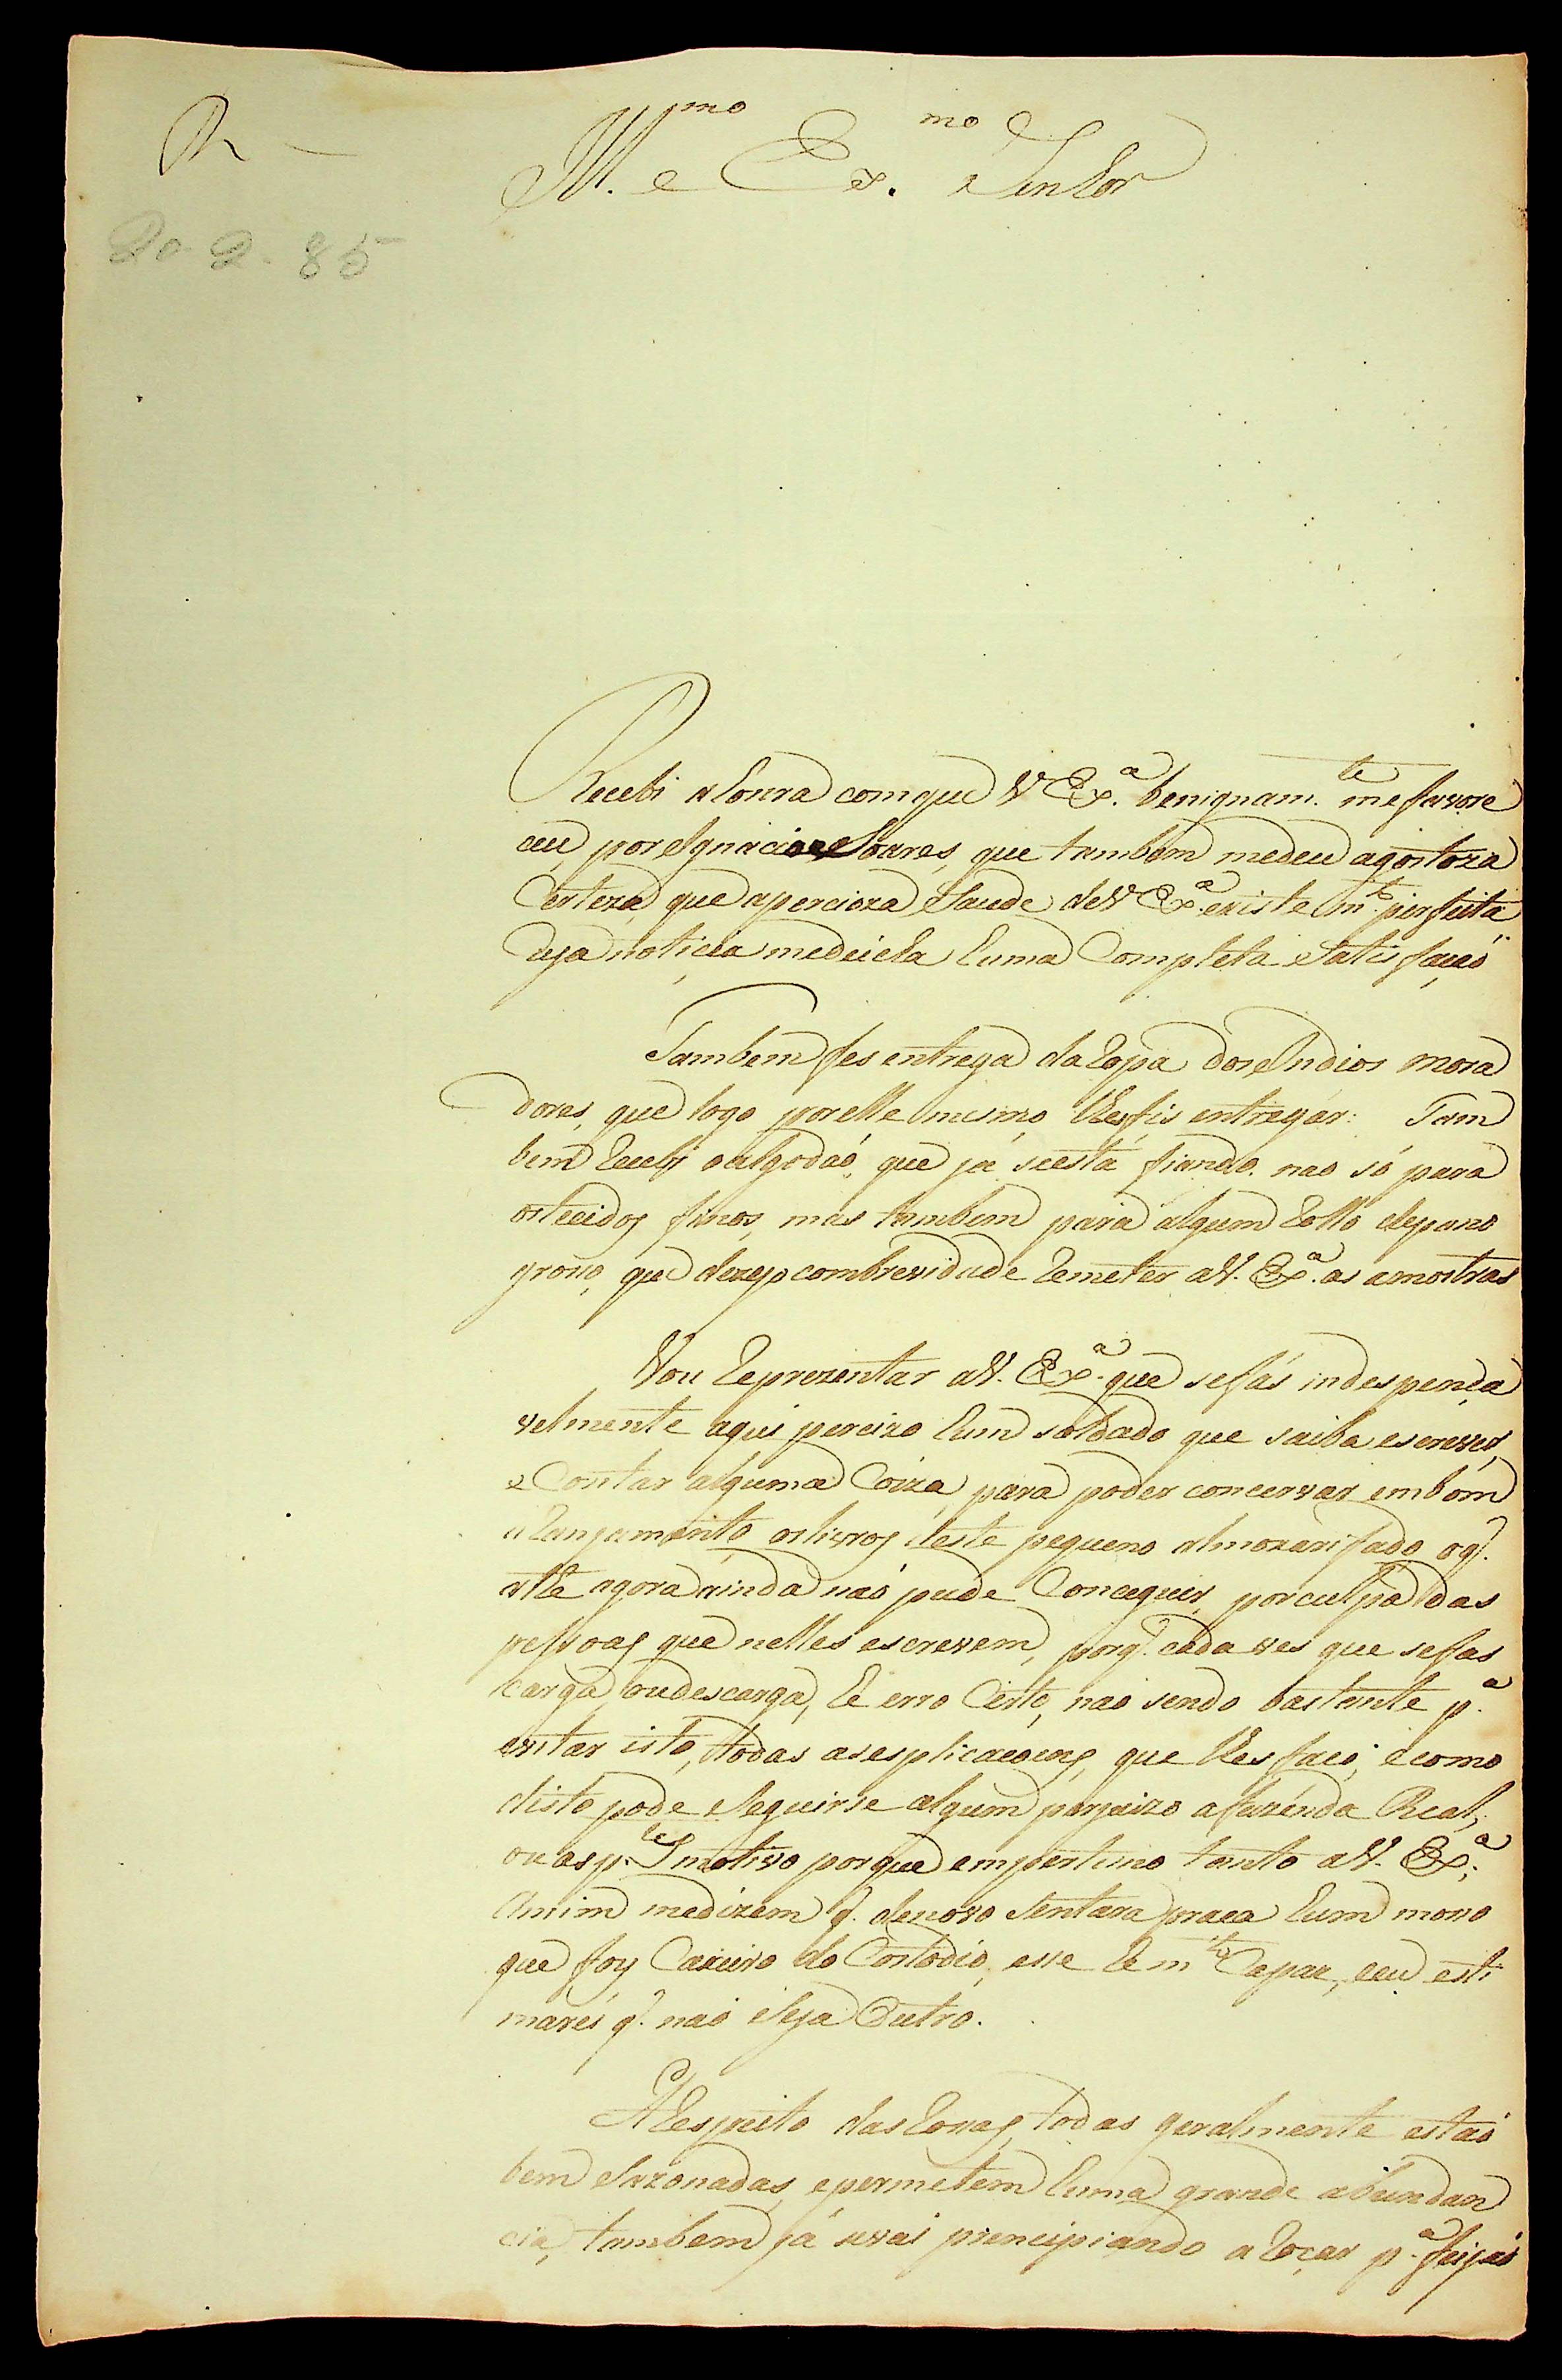 R
Ill.mo e Ex.mo Senhor
20-2-85
Recebi a honra com que V Ex.a benignam.te me favore
ceu por Ignacio Soares, que tambem me deu a gostoza
Certeza que a percioza Saude de V Ex.a existe m.to perfeita
cuja noticia me deicha huma Completa Satisfação
Tambem fes entrega da ropa dos Indios mora
dores, que logo por elle mesmo lhes fis entregar: Tam
bem recebi o algodaó, que já se está fiando. nao só para
os tecidos finos, mas tambem para algum rollo de pano
groso, que dezejo com brevidade remeter a V. Ex.a as amostras
Vou reprezentar a V. Ex.a que se fás indespença
velmente aqui percizo hum soldado que saiba escrever,
e Contar alguma Coiza, para poder concervar em bom
aranjamento os livros deste pequeno almoxarifado o q.
athe agora ainda naó pude Conceguir, por culpa das
pessoas que nelles escrevem, porq. cada ves que se fas
carga, ou descarga, he erro Certo, naó sendo bastente p.a
evitar isto, todas as esplicacoens, que lhes faço, e como
disto pode Seguirse algum perjuizo a fazenda Real,
ou as p.tes motivo porque empertino tanto a V. Ex.a;
Amim me dizem q. de novo Sentara praça hum moso
que foy Caxeiro do Costodio, esse he m.to Capaz, e eu esti
marei q. naó Seja Outro.
A Respeito das rosas, todas geralmente estaó
bem Sazonadas, e permetem huma grande abundan
cia, tambem já se vai prencipiando a roçar p.a feijaó